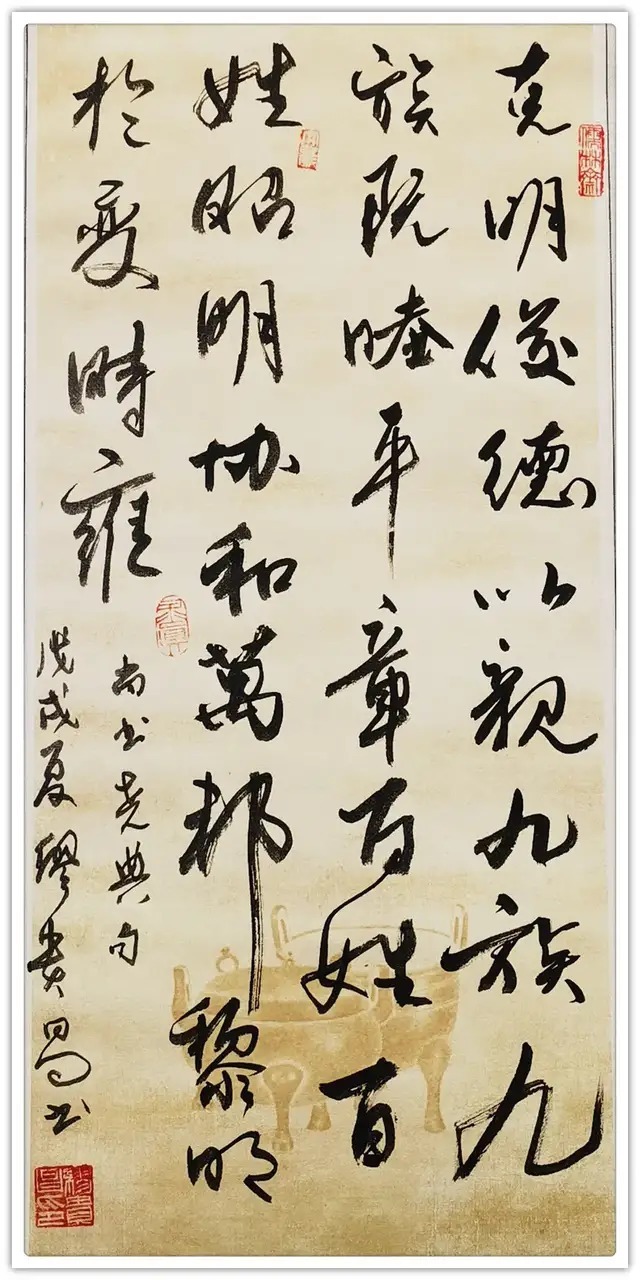 克明俊德以親九族九
族既睦平章百姓百
姓昭明协和萬邦黎明
於變時雍
尚书堯典句
戊戌夏繆貴昌书